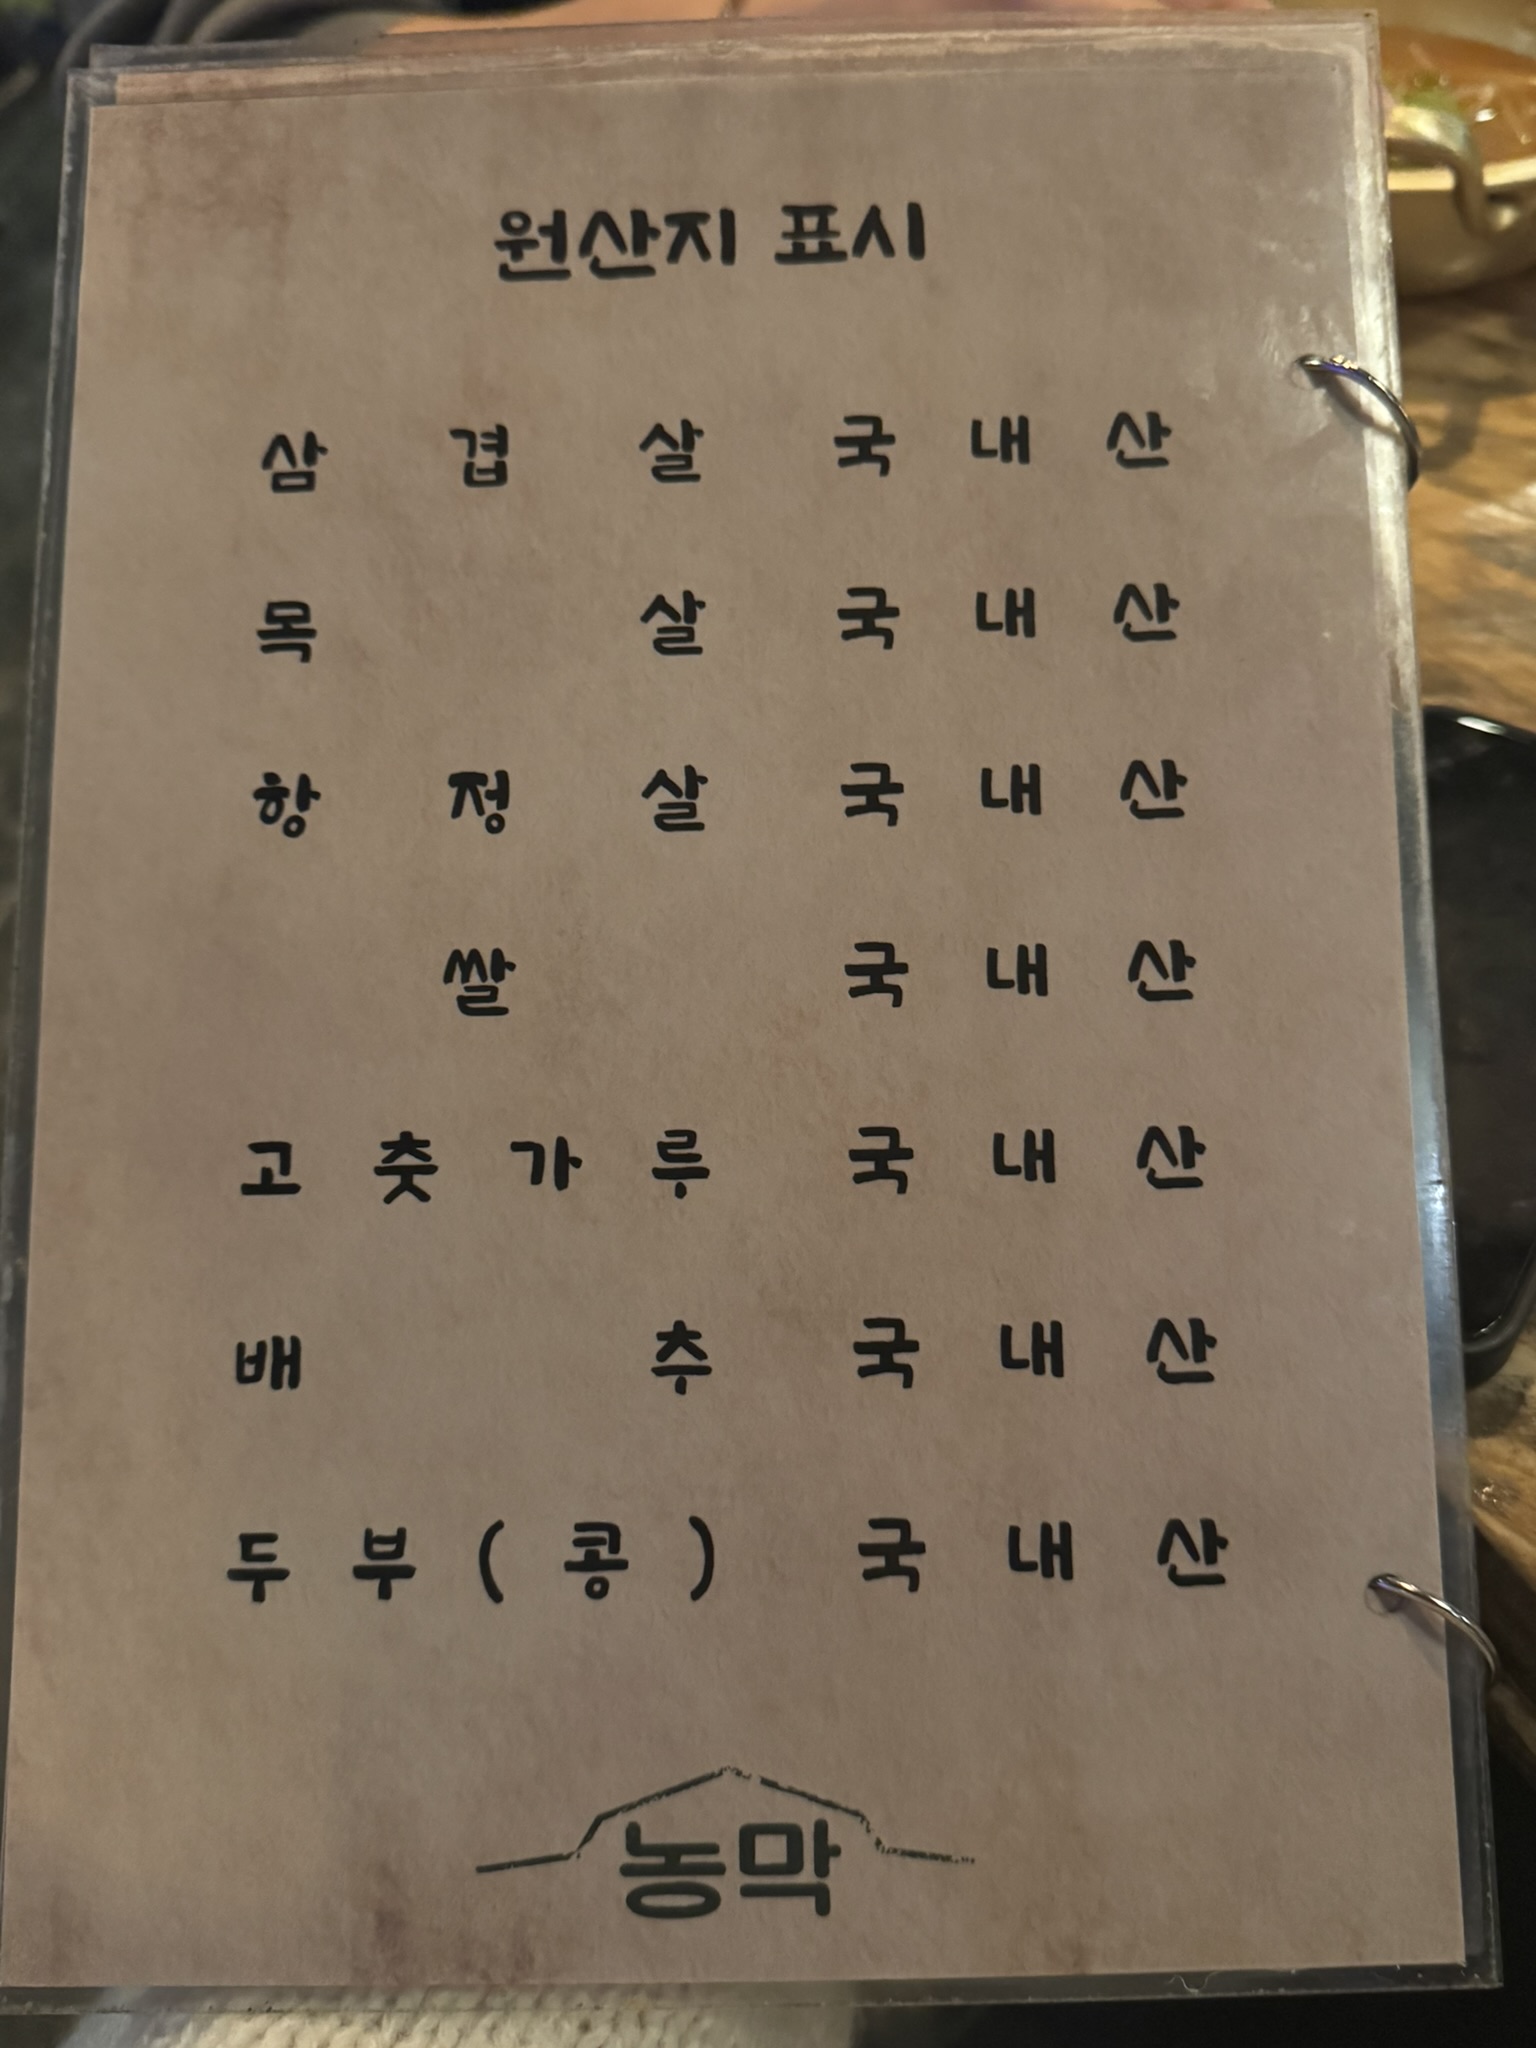 원산지 표시
삼 겹 살 국 내 산
목 살 국 내 산
항 정 살 국 내 산
쌀 국 내 산
고 춧 가 루 국 내 산
배 추 국 내 산
두 부 ( 콩 ) 국 내 산
농막